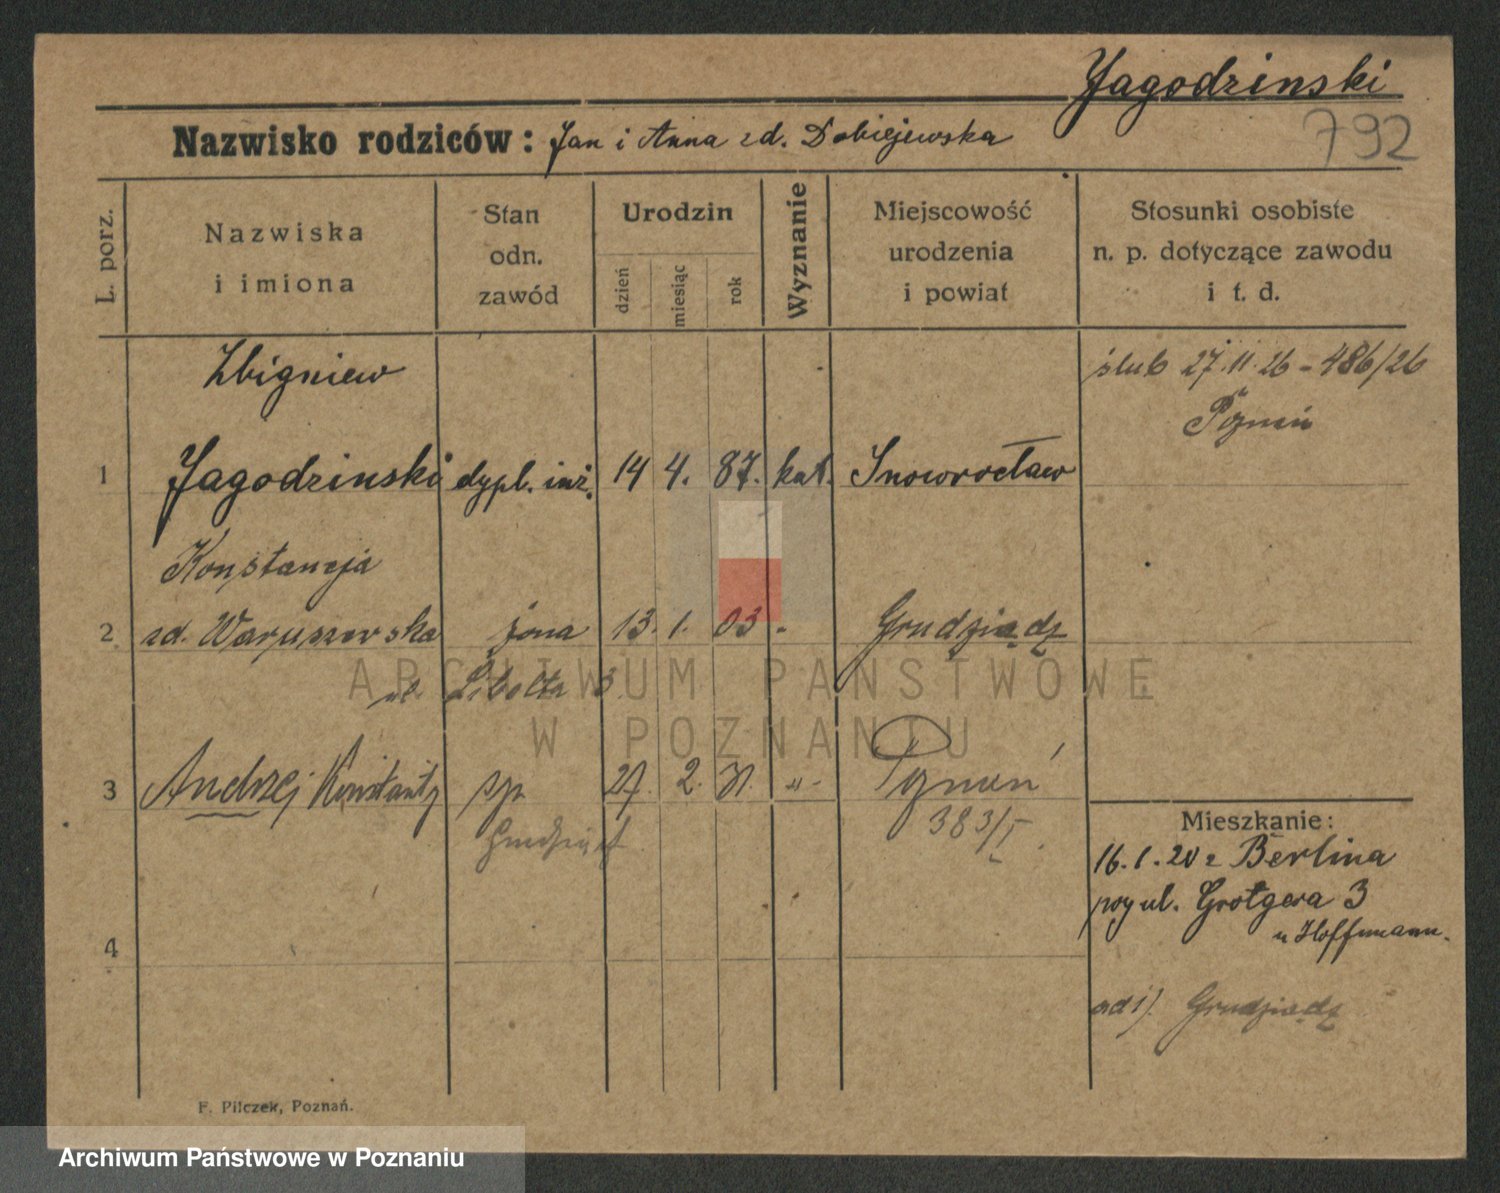 Jagodzinski
792
Nazwisko rodziców: Jan i Anna zd. Dobiejewska
L. porz.
Nazwiska
i imiona
Stan
odn.
zawód
Urodzin
dzień
miesiąc
rok
Wyznanie
Miejscowość
urodzenia
i powiat
Stosunki osobiste
n. p. dotyczące zawodu
i t. d.
Zbigniew
ślub 27.11.26 - 486/26
Poznań
1 Jagodzinski dypl. inż. 14 4. 87. kat. Inowrocław
Konstancja
2 zd. Waruszewska żona 13. 1. 03 - Grudziądz
ul. Libelta 3
3 Andrzej Konstanty 27. 2. 31. -"- Poznań
Grudziądz 383/I
Mieszkanie:
16.1.20 z Berlina
przy ul. Grotgera 3
u Hoffmann.
4
ad 1). Grudziądz
F. Pilczek, Poznań.
ARCHIWUM PAŃSTWOWE
W POZNANIU
Archiwum Państwowe w Poznaniu